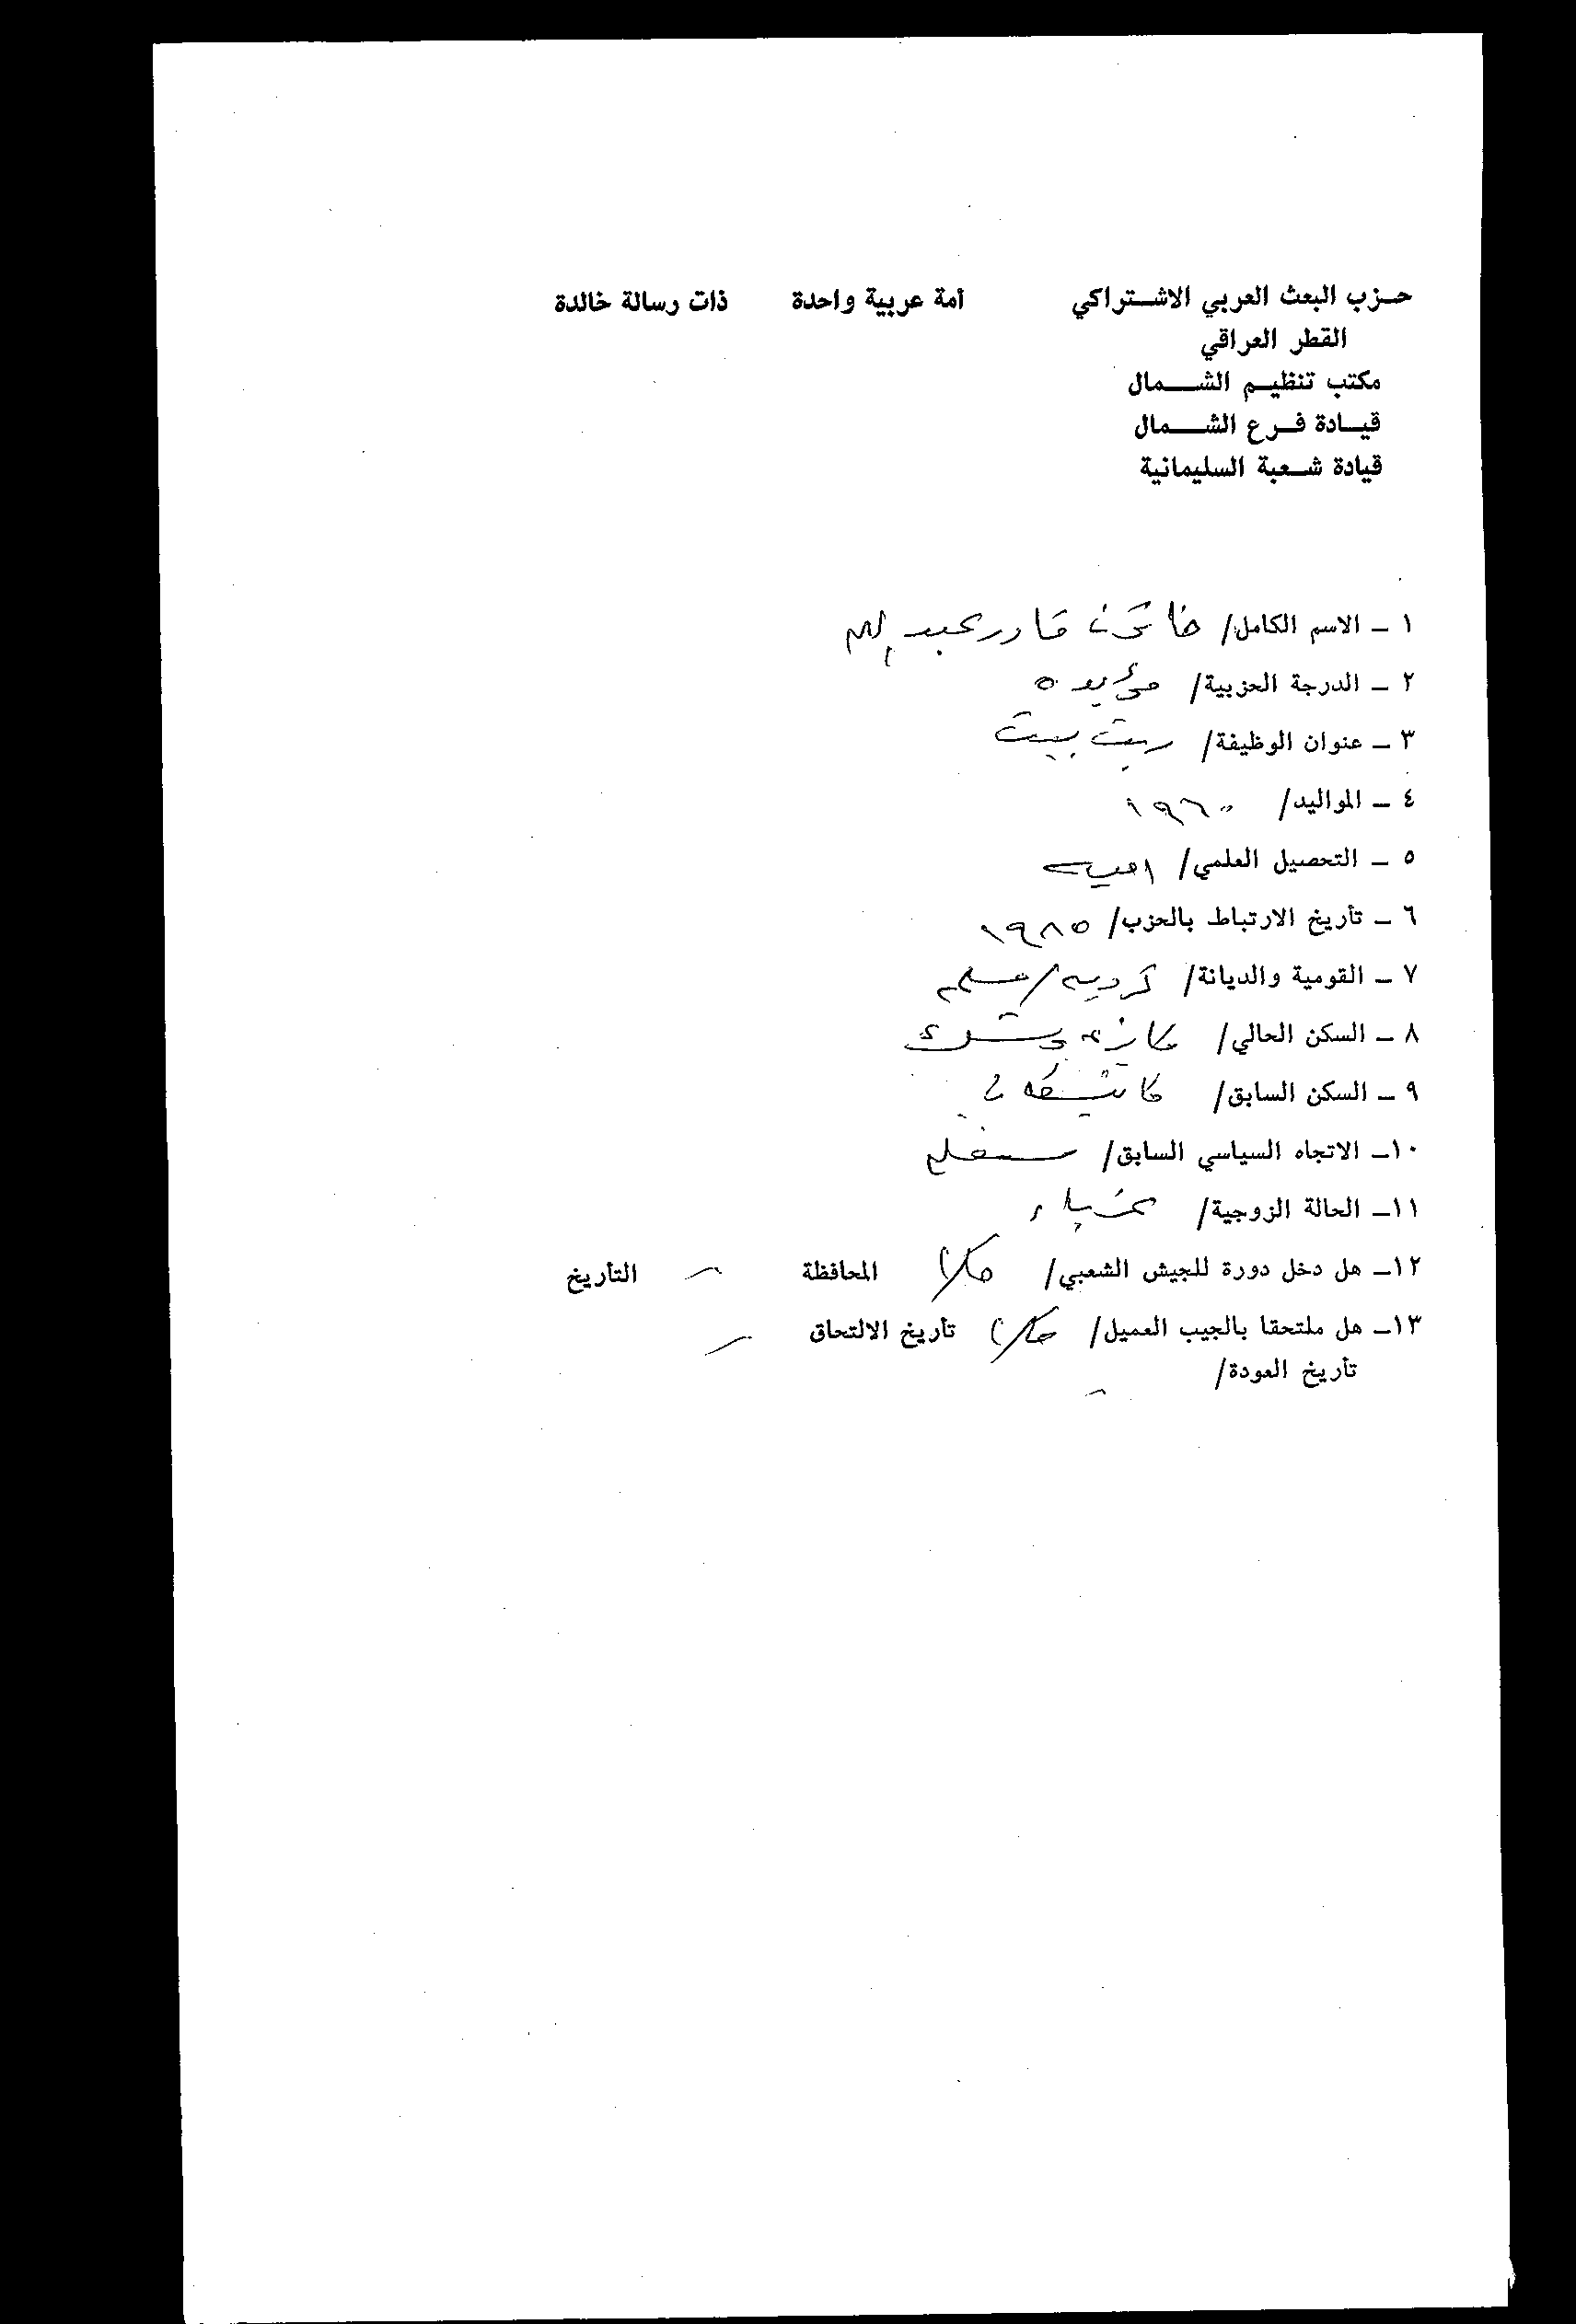 حزب البعث العربي الاشتراكي أمة عربية واحدة ذات رسالة خالدة
القطر العراقي
مكتب تنظيم الشمال
قيادة فرع الشمال
قيادة شعبة السليمانية
١ - الاسم الكامل/ قادر عبد الله
٢ - الدرجة الحزبية/ مؤيده
٣ - عنوان الوظيفة/ ربت بيت
٤ - المواليد/ ١٩٦٠
٥ - التحصيل العلمي/ اميه
٦ - تأريخ الارتباط بالحزب/ ١٩٨٥
٧ - القومية والديانة/ كرديه/مسلم
٨ - السكن الحالي/
٩ - السكن السابق/
١٠- الاتجاه السياسي السابق/ مستقل
١١- الحالة الزوجية/
١٢- هل دخل دورة للجيش الشعبي/ كلا المحافظة - التأريخ
١٣- هل ملتحقا بالجيب العميل/ كلا تأريخ الالتحاق -
تأريخ العودة/ -